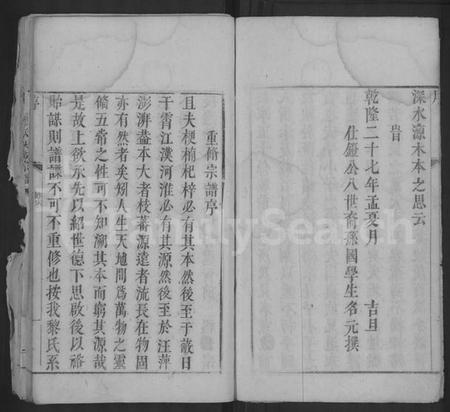 深水源木本之思云
旹
乾隆二十七年孟夏月　吉旦
仕鐙公八世裔孫國學生名元撰
重脩宗譜序
且夫梗楠杞梓必有其本然後至于蔽日
干霄江漢河淮必有其源然後至於汪萍
澎湃蓋本大者枝蕃源遠者流長在物固
亦有然者矣矧人生天地間為萬物之靈
備五常之性可不溯其本而窮其源哉
是故上欲承先以紹世德下思啟後以裕
貽謀則譜諜不可不重修也按我黎氏系
序
FamilySearch